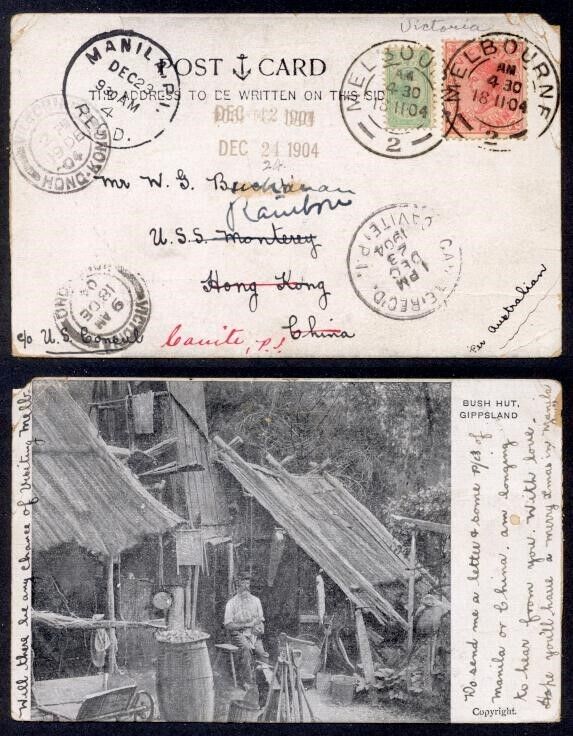 Victoria
POST CARD
THE ADDRESS TO BE WRITTEN ON THIS SIDE
MANILA P.I.
DEC 23
9 30 AM
4
REC'D.
MELBOURNE
AM
4 30
18 11 04
2
MELBOURNE
AM
4 30
18 11 04
2
DEC 24 1904
24
HONG KONG
Mr W. G. Buchanan
Rainbow
U.S.S. Monterey
Hong Kong
China
c/o U.S. Consul
Cavite, P.I.
9 AM
CAVITE, P.I.
DEC
1 PM
1904
REC'D.
per Australian
BUSH HUT,
GIPPSLAND
Do send me a letter & some P/Cs of
Manila or China. am longing
to hear from you. With love.
Hope you'll have a merry Xmas in Manila
Will there be any Chance of Visiting Melb.
Copyright.